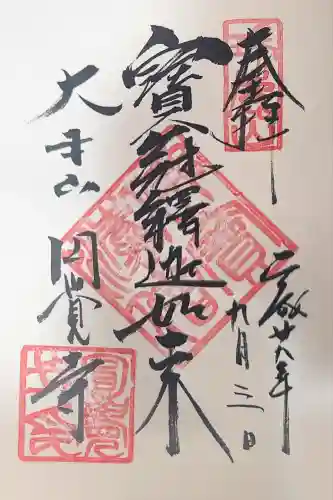 奉拝
平成廿九年
九月三日
寶冠釋迦如来
大本山
円覚寺